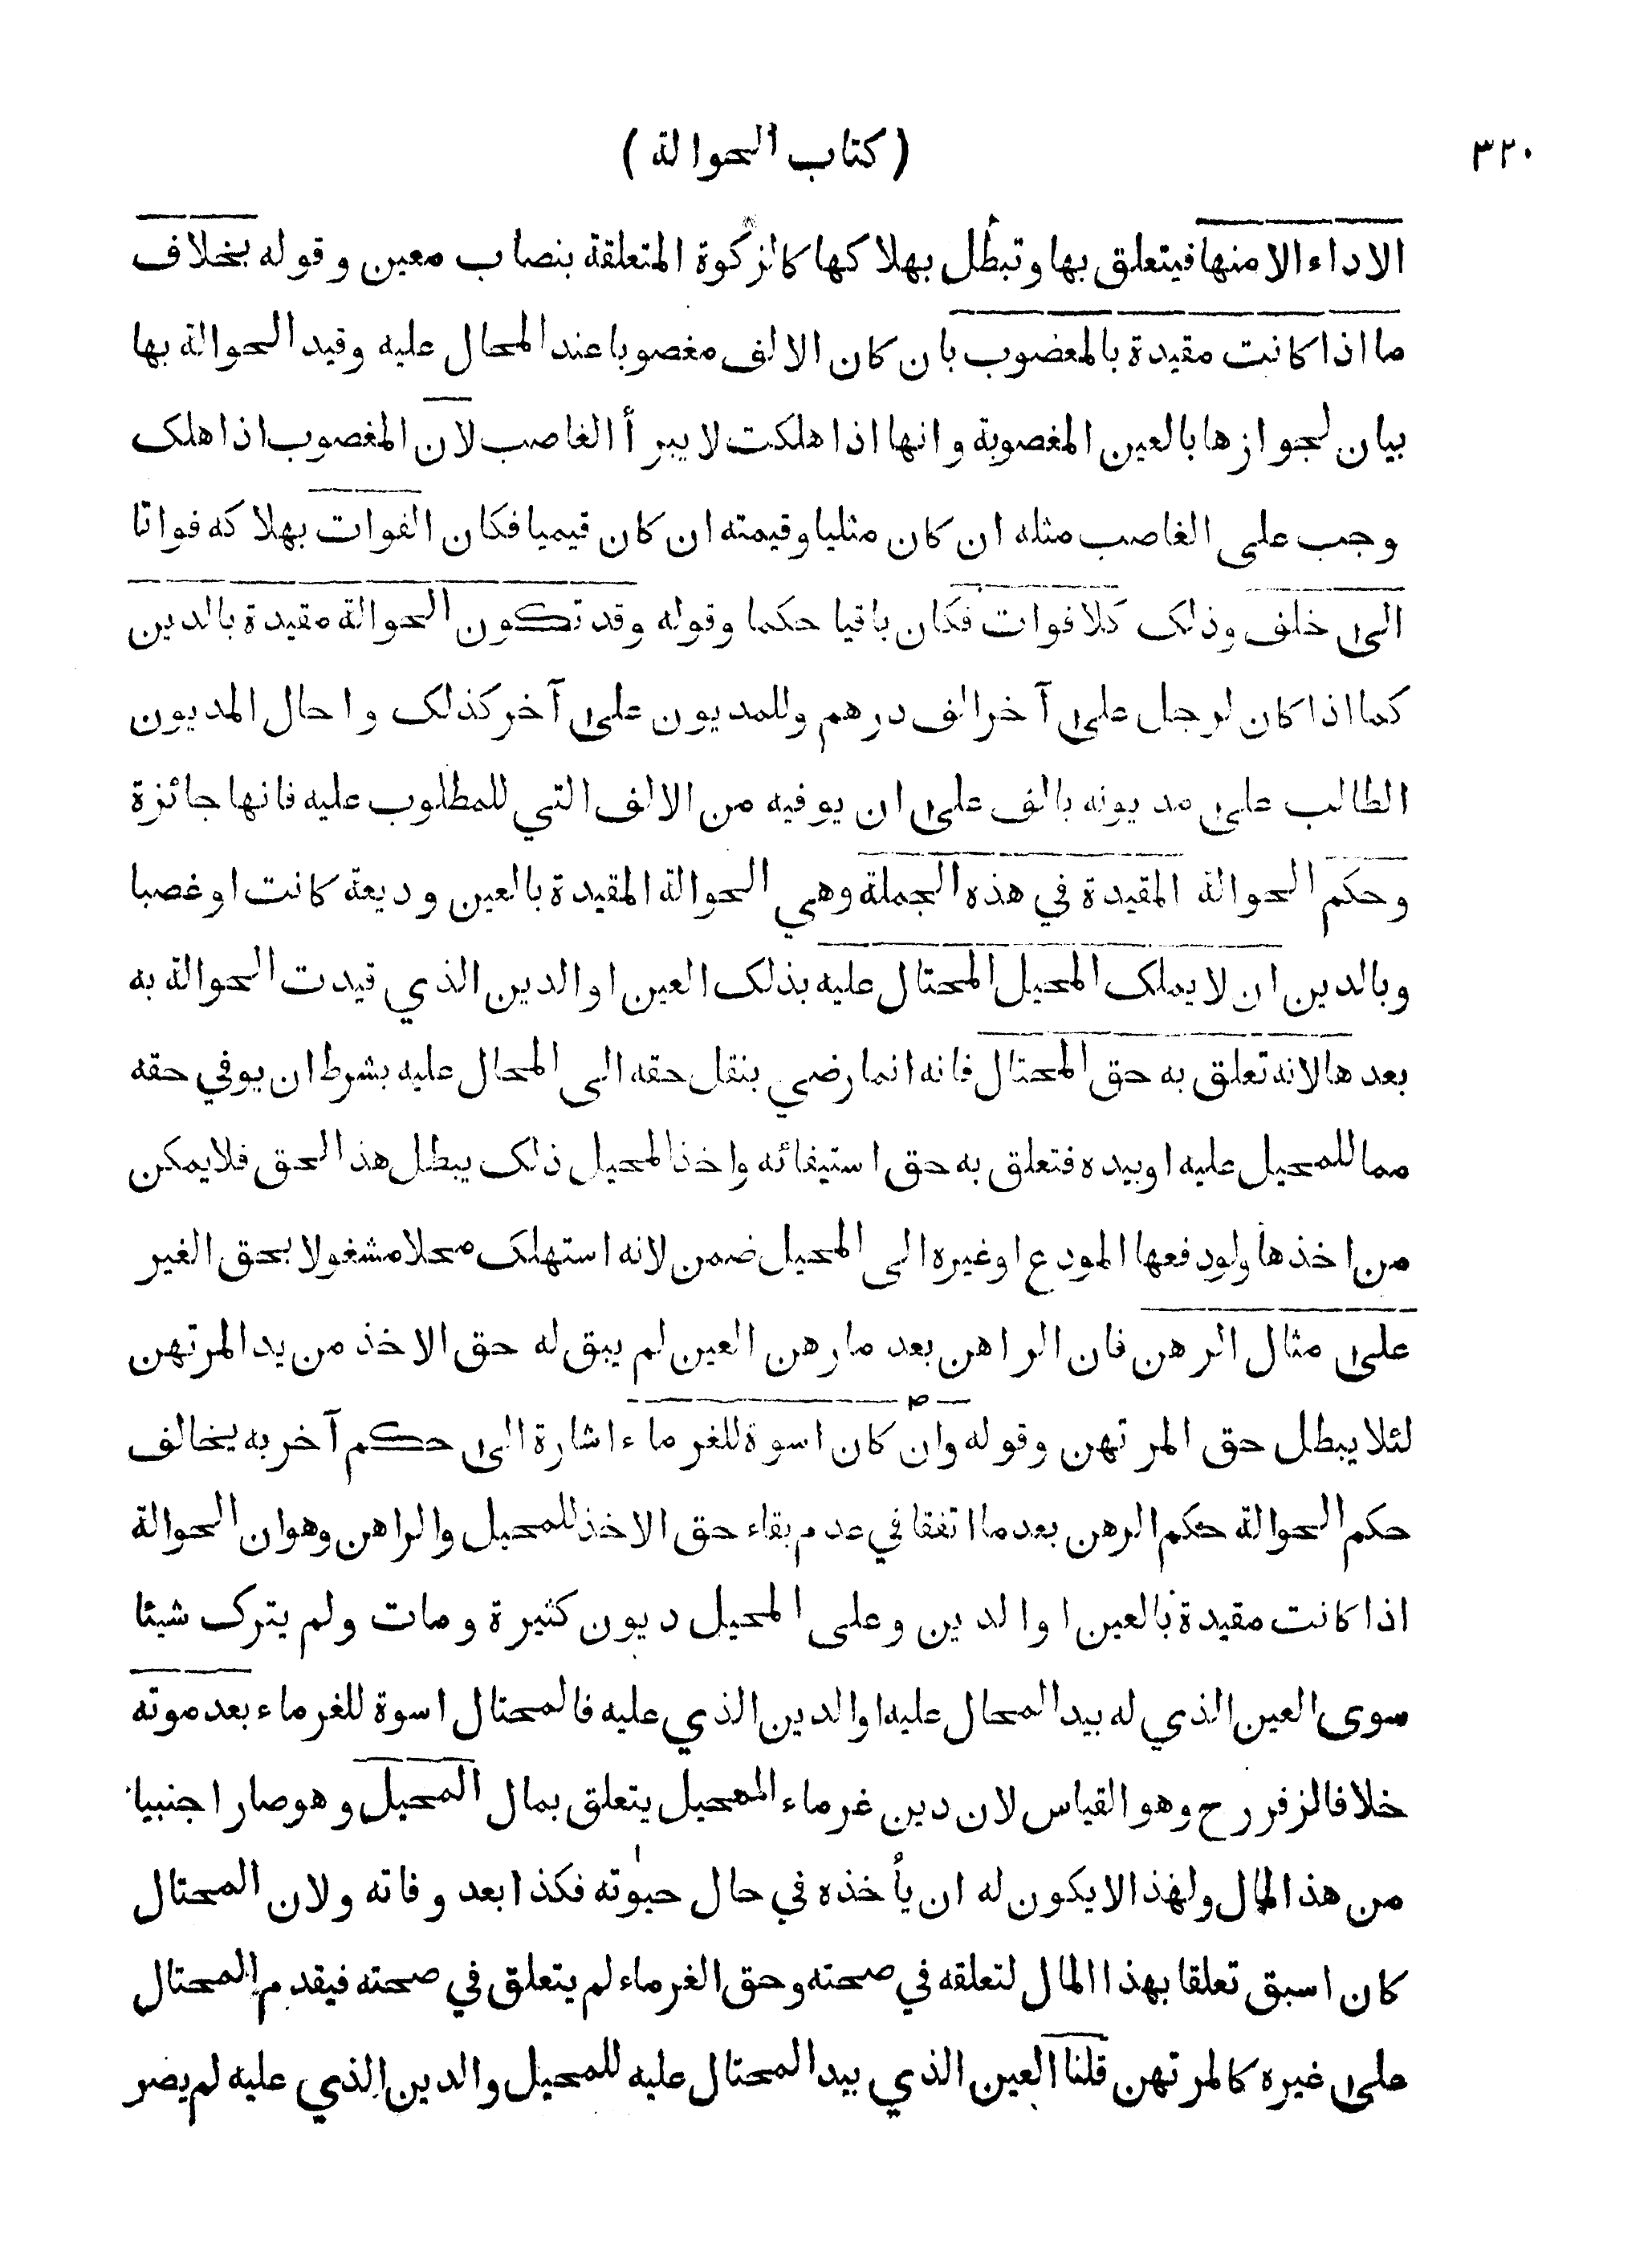 ٣٢٠
( كتاب الحوالة )
الاداء الا منها فيتعلق بها وتبطل بهلاكها كالزكوة المتعلقة بنصاب معين وقوله بخلاف
ما اذا كانت مقيدة بالمغضوب بان كان الالف مغصوبا عند المحال عليه وقيد الحوالة بها
بيان لجوازها بالعين المغصوبة وانها اذا هلكت لا يبرأ الغاصب لان المغصوب اذا هلك
وجب على الغاصب مثله ان كان مثليا وقيمته ان كان قيميا فكان الفوات بهلاكه فواتا
الى خلف وذلك كلا فوات فكان باقيا حكما وقوله وقد تكون الحوالة مقيدة بالدين
كما اذا كان لرجل على آخر الف درهم وللمديون على آخر كذلك واحال المديون
الطالب على مديونه بالف على ان يوفيه من الالف التي للمطلوب عليه فانها جائزة
وحكم الحوالة المقيدة في هذه الجملة وهي الحوالة المقيدة بالعين وديعة كانت او غصبا
وبالدين ان لا يملك المحيل المحتال عليه بذلك العين او الدين الذي قيدت الحوالة به
بعدها لانه تعلق به حق المحتال فانه انما رضي بنقل حقه الى المحال عليه بشرط ان يوفي حقه
مما للمحيل عليه او بيده فتعلق به حق استيفائه واخذ المحيل ذلك يبطل هذا الحق فلا يمكن
من اخذها ولو دفعها المودع او غيره الى المحيل ضمن لانه استهلك محلا مشغولا بحق الغير
على مثال الرهن فان الراهن بعد ما رهن العين لم يبق له حق الاخذ من يد المرتهن
لئلا يبطل حق المرتهن وقوله وان كان اسوة للغرماء اشارة الى حكم آخر به يخالف
حكم الحوالة حكم الرهن بعد ما اتفقا في عدم بقاء حق الاخذ للمحيل والراهن وهو ان الحوالة
اذا كانت مقيدة بالعين او الدين وعلى المحيل ديون كثيرة ومات ولم يترك شيئا
سوى العين الذي له بيد المحال عليه او الدين الذي عليه فالمحتال اسوة للغرماء بعد موته
خلافا لزفر رح وهو القياس لان دين غرماء المحيل يتعلق بمال المحيل وهو صار اجنبيا
من هذا المال ولهذا لا يكون له ان يأخذه في حال حيوته فكذا بعد وفاته ولان المحتال
كان اسبق تعلقا بهذا المال لتعلقه في صحته وحق الغرماء لم يتعلق في صحته فيقدم المحتال
على غيره كالمرتهن قلنا العين الذي بيد المحتال عليه للمحيل والدين الذي عليه لم يصر